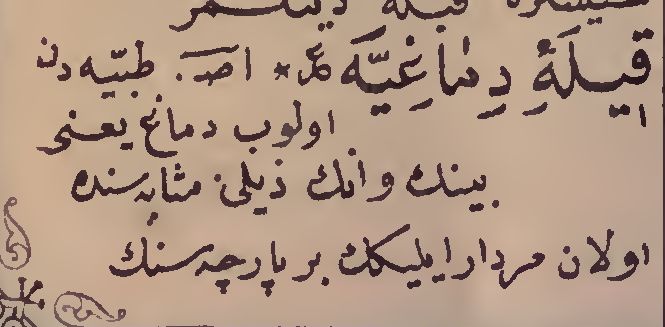 قيله
قِيلَۀِ دِمَاغِيَّه ع * اصـ. طبّيه دن
اولوب دماغ يعنى
بينك وانك ذيلى مثابه سنده
اولان مردار ايليكك بر پارچه سنك